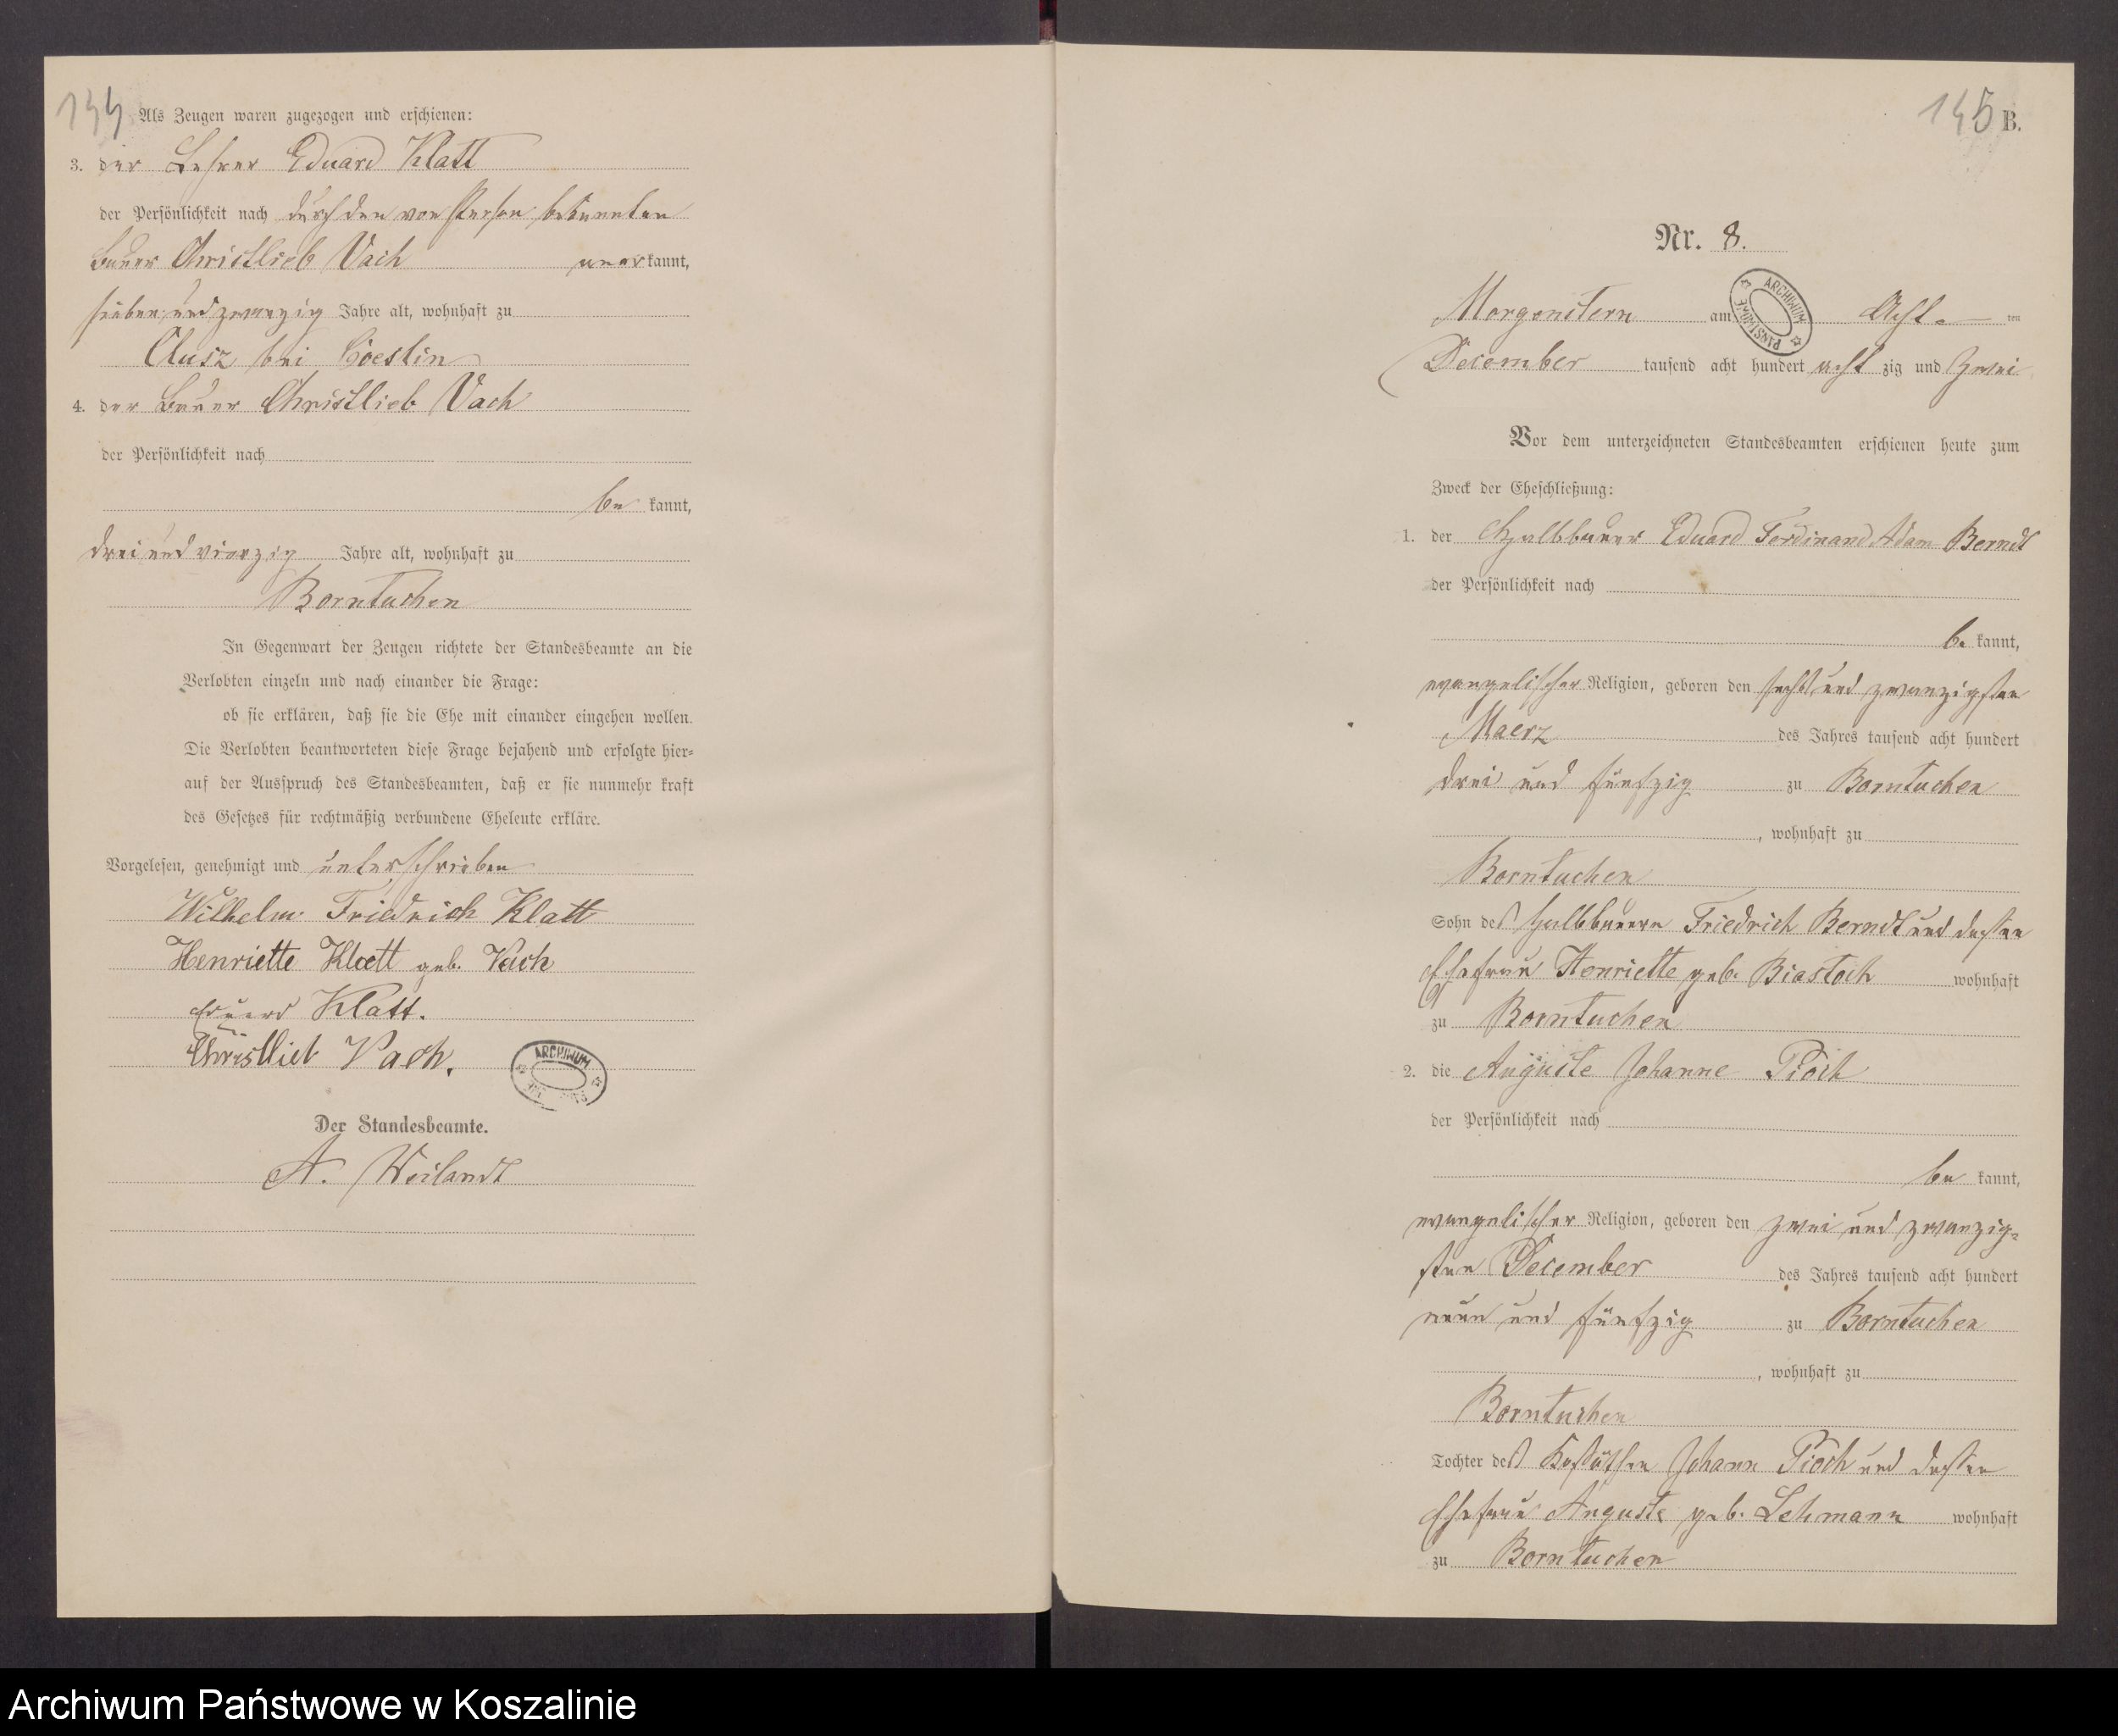 144
Als Zeugen waren zugezogen und erschienen:
3. der Lehrer Eduard Klatt
der Persönlichkeit nach durch den von Person bekannten
Bauer Christlieb Vach anerkannt,
sieben und zwanzig Jahre alt, wohnhaft zu
Clusz bei Coeslin
4. der Bauer Christlieb Vach
der Persönlichkeit nach
be kannt,
drei und vierzig Jahre alt, wohnhaft zu
Borntuchen
In Gegenwart der Zeugen richtete der Standesbeamte an die
Verlobten einzeln und nach einander die Frage:
ob sie erklären, daß sie die Ehe mit einander eingehen wollen.
Die Verlobten beantworteten diese Frage bejahend und erfolgte hier-
auf der Ausspruch des Standesbeamten, daß er sie nunmehr kraft
des Gesetzes für rechtmäßig verbundene Eheleute erkläre.
Vorgelesen, genehmigt und unterschrieben
Wilhelm Friedrich Klatt
Henriette Klatt geb. Vach
Eduard Klatt.
Christlieb Vach.
ARCHIWUM
Der Standesbeamte.
A. Weilandt
145 B.
Nr. 8.
ARCHIWUM PAŃSTWOWE
Morgenstern am Acht ten
December tausend acht hundert acht zig und zwei
Vor dem unterzeichneten Standesbeamten erschienen heute zum
Zweck der Eheschließung:
1. der Halbbauer Eduard Ferdinand Adam Berndt
der Persönlichkeit nach
be kannt,
evangelischer Religion, geboren den sechs und zwanzigsten
Maerz des Jahres tausend acht hundert
drei und fünfzig zu Borntuchen
, wohnhaft zu
Borntuchen
Sohn des Halbbauern Friedrich Berndt und dessen
Ehefrau Henriette geb. Biastoch wohnhaft
zu Borntuchen
2. die Auguste Johanne Pioch
der Persönlichkeit nach
be kannt,
evangelischer Religion, geboren den zwei und zwanzig-
sten December des Jahres tausend acht hundert
neun und fünfzig zu Borntuchen
, wohnhaft zu
Borntuchen
Tochter des Kossäthen Johann Pioch und dessen
Ehefrau Auguste geb. Lehmann wohnhaft
zu Borntuchen
Archiwum Państwowe w Koszalinie